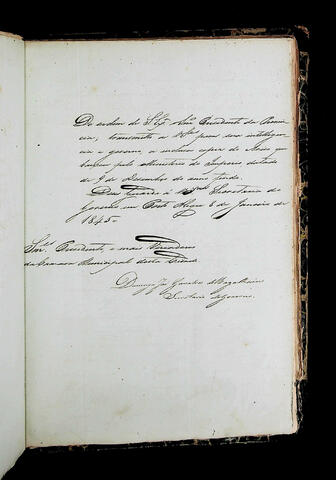 De ordem de S. Exª o Snr Presidente da Provin
cia, transmitto a VSas para sua intelligen
cia e governo a inclusa copia do Aviso que
baixou pelo Ministerio do Imperio datado
de 9 de Dezembro do anno findo.
Deus Guarde a VSas Secretaria do
Governo em Porto Alegre 8 de Janeiro de
1845.
Snres Presidente e mais Vereadores
da Camara Municipal desta Cidade
Domingos José Gonçalves de Magalhães
Secretario do Governo